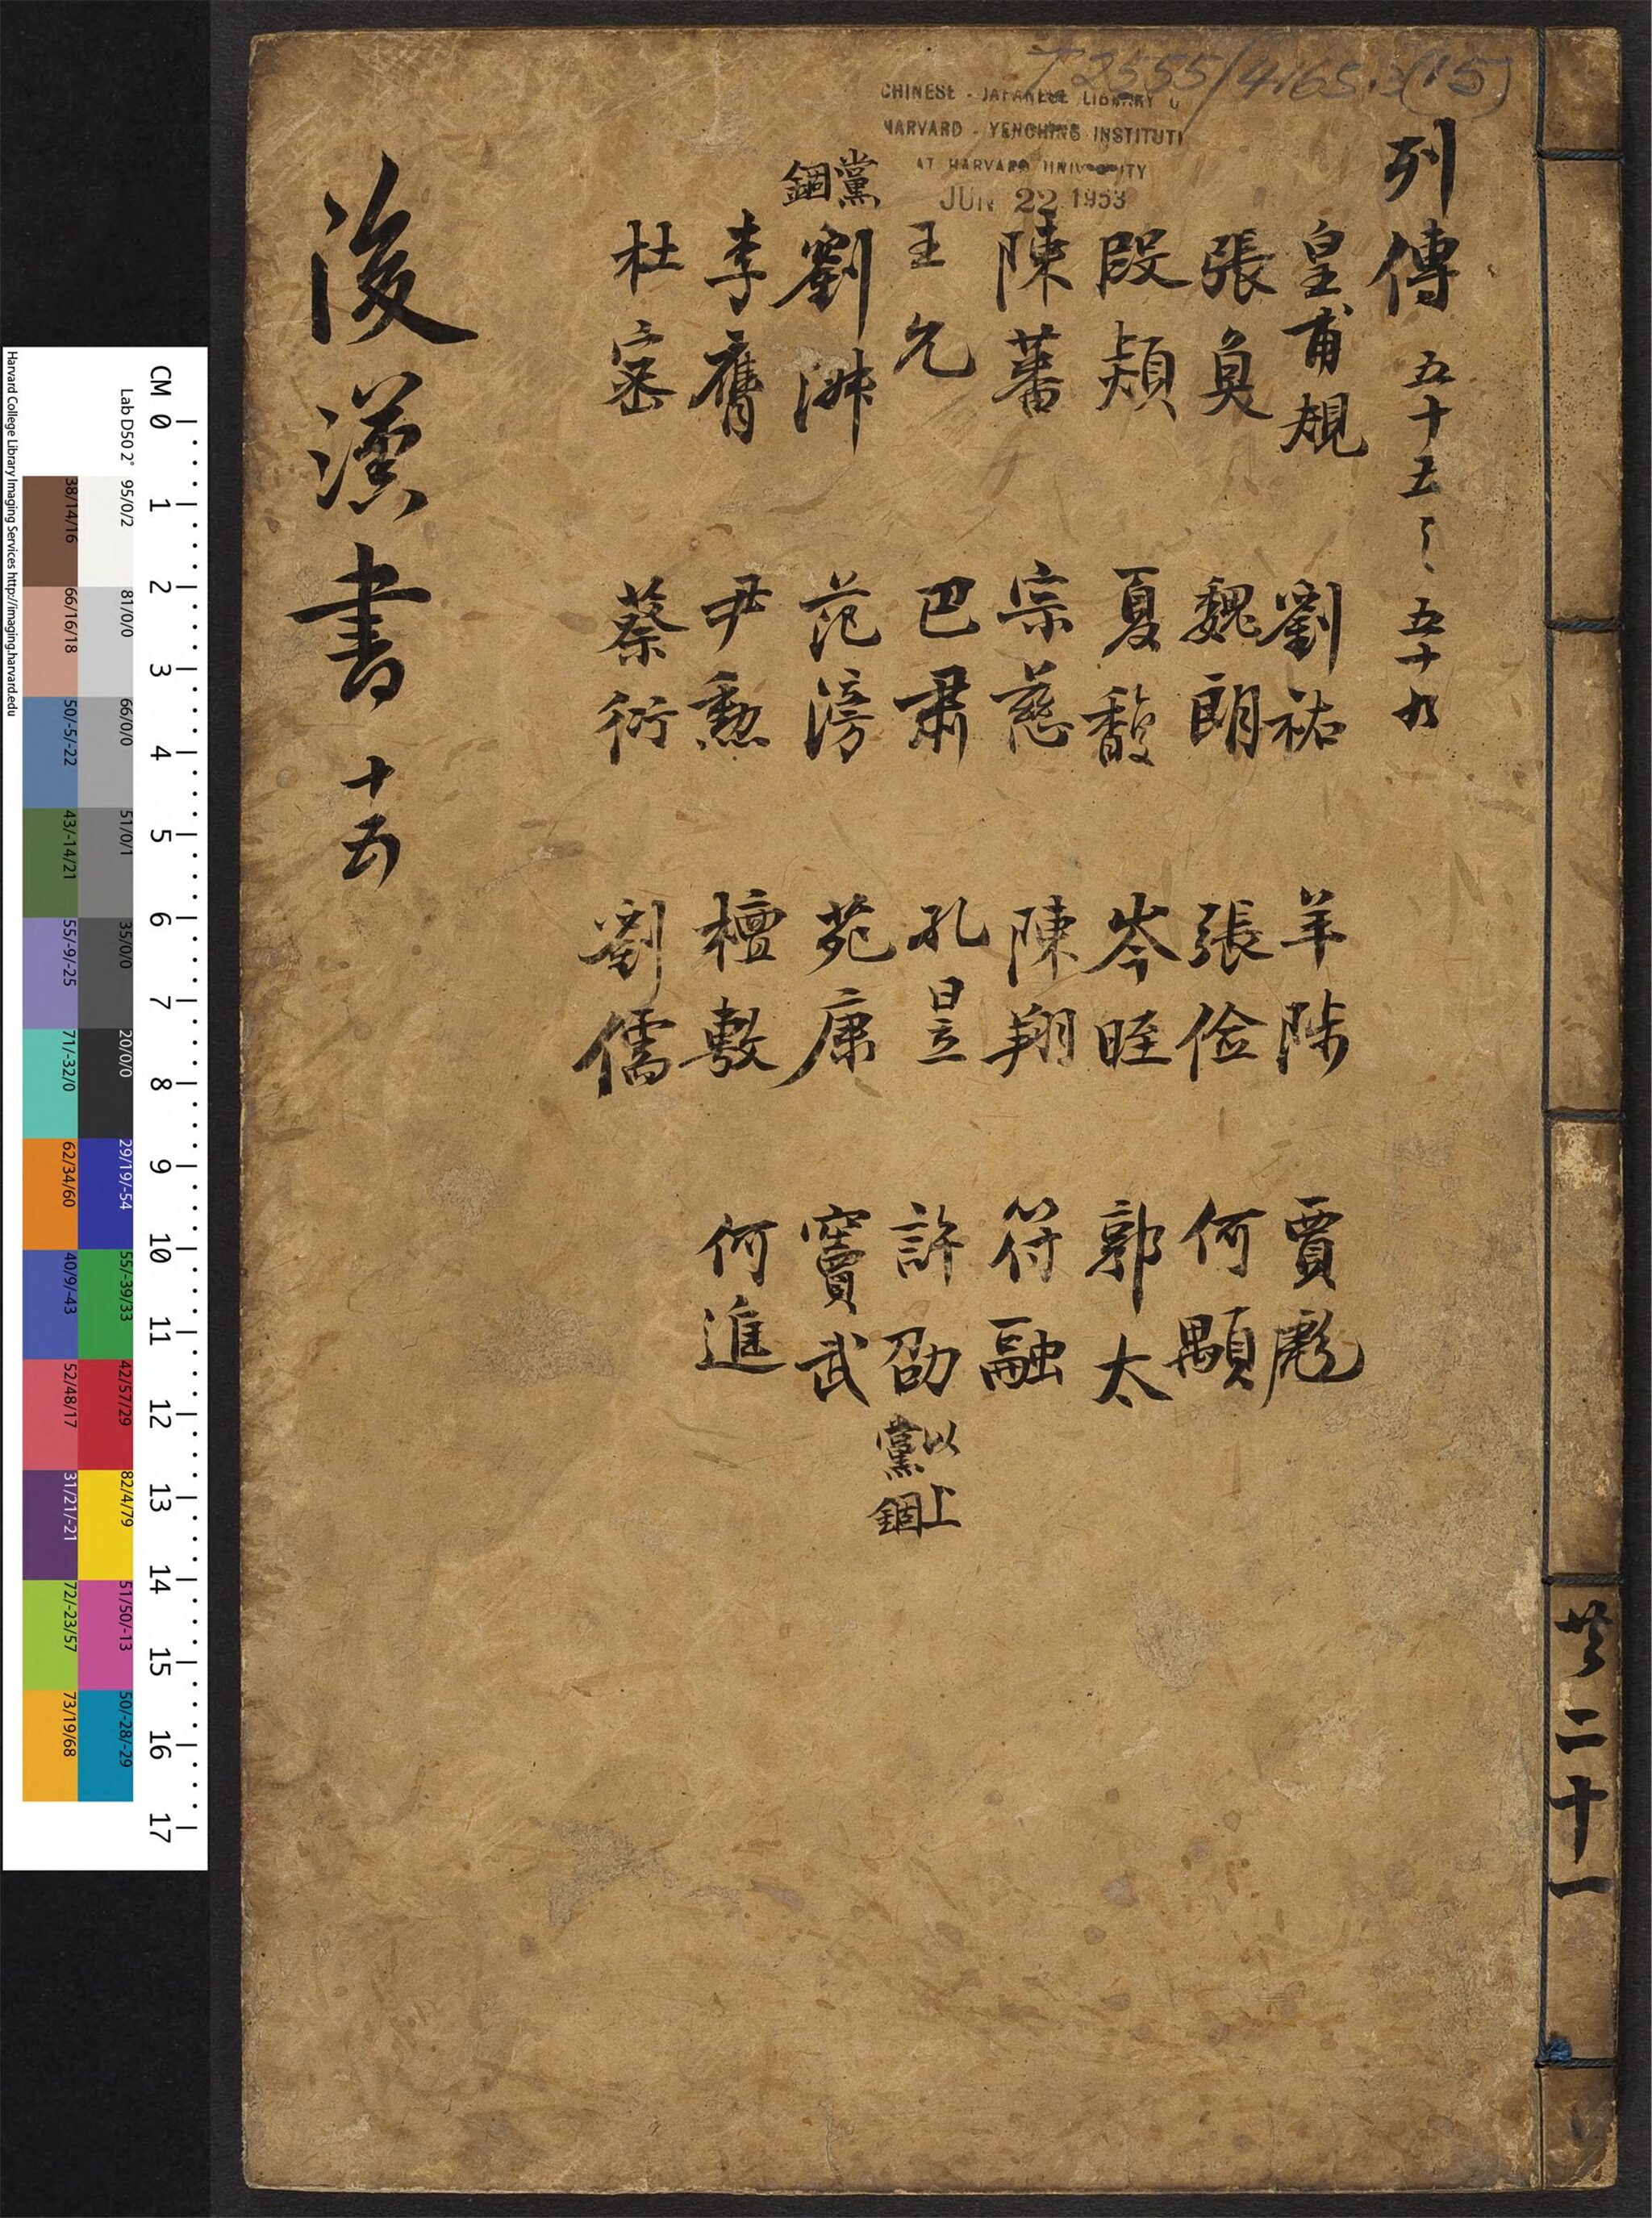 T2555/4165.3(15)
CHINESE - JAPANESE LIBRARY
HARVARD - YENCHING INSTITUTE
AT HARVARD UNIVERSITY
JUN 22 1953
列傳 五十五 五十九
皇甫規
張奐
段熲
陳蕃
王允
黨錮
劉淑
李膺
杜密
劉祐
魏朗
夏馥
宗慈
巴肅
范滂
尹勲
蔡衍
羊陟
張儉
岑晊
陳翔
孔昱
苑康
檀敷
劉儒
賈彪
何顒
郭太
符融
許劭 以上黨錮
竇武
何進
後漢書 十五
共二十一
CM 0 1 2 3 4 5 6 7 8 9 10 11 12 13 14 15 16 17
Lab D50 2°
95/0/2
81/0/0
66/0/0
51/0/1
35/0/0
20/0/0
29/19/-54
55/-39/33
42/57/29
82/4/79
51/50/-13
50/-28/-29
38/14/16
66/16/18
50/-5/-22
43/-14/21
55/-9/-25
71/-32/0
62/34/60
40/9/-43
52/48/17
31/21/-21
72/-23/57
73/19/68
Harvard College Library Imaging Services http://imaging.harvard.edu